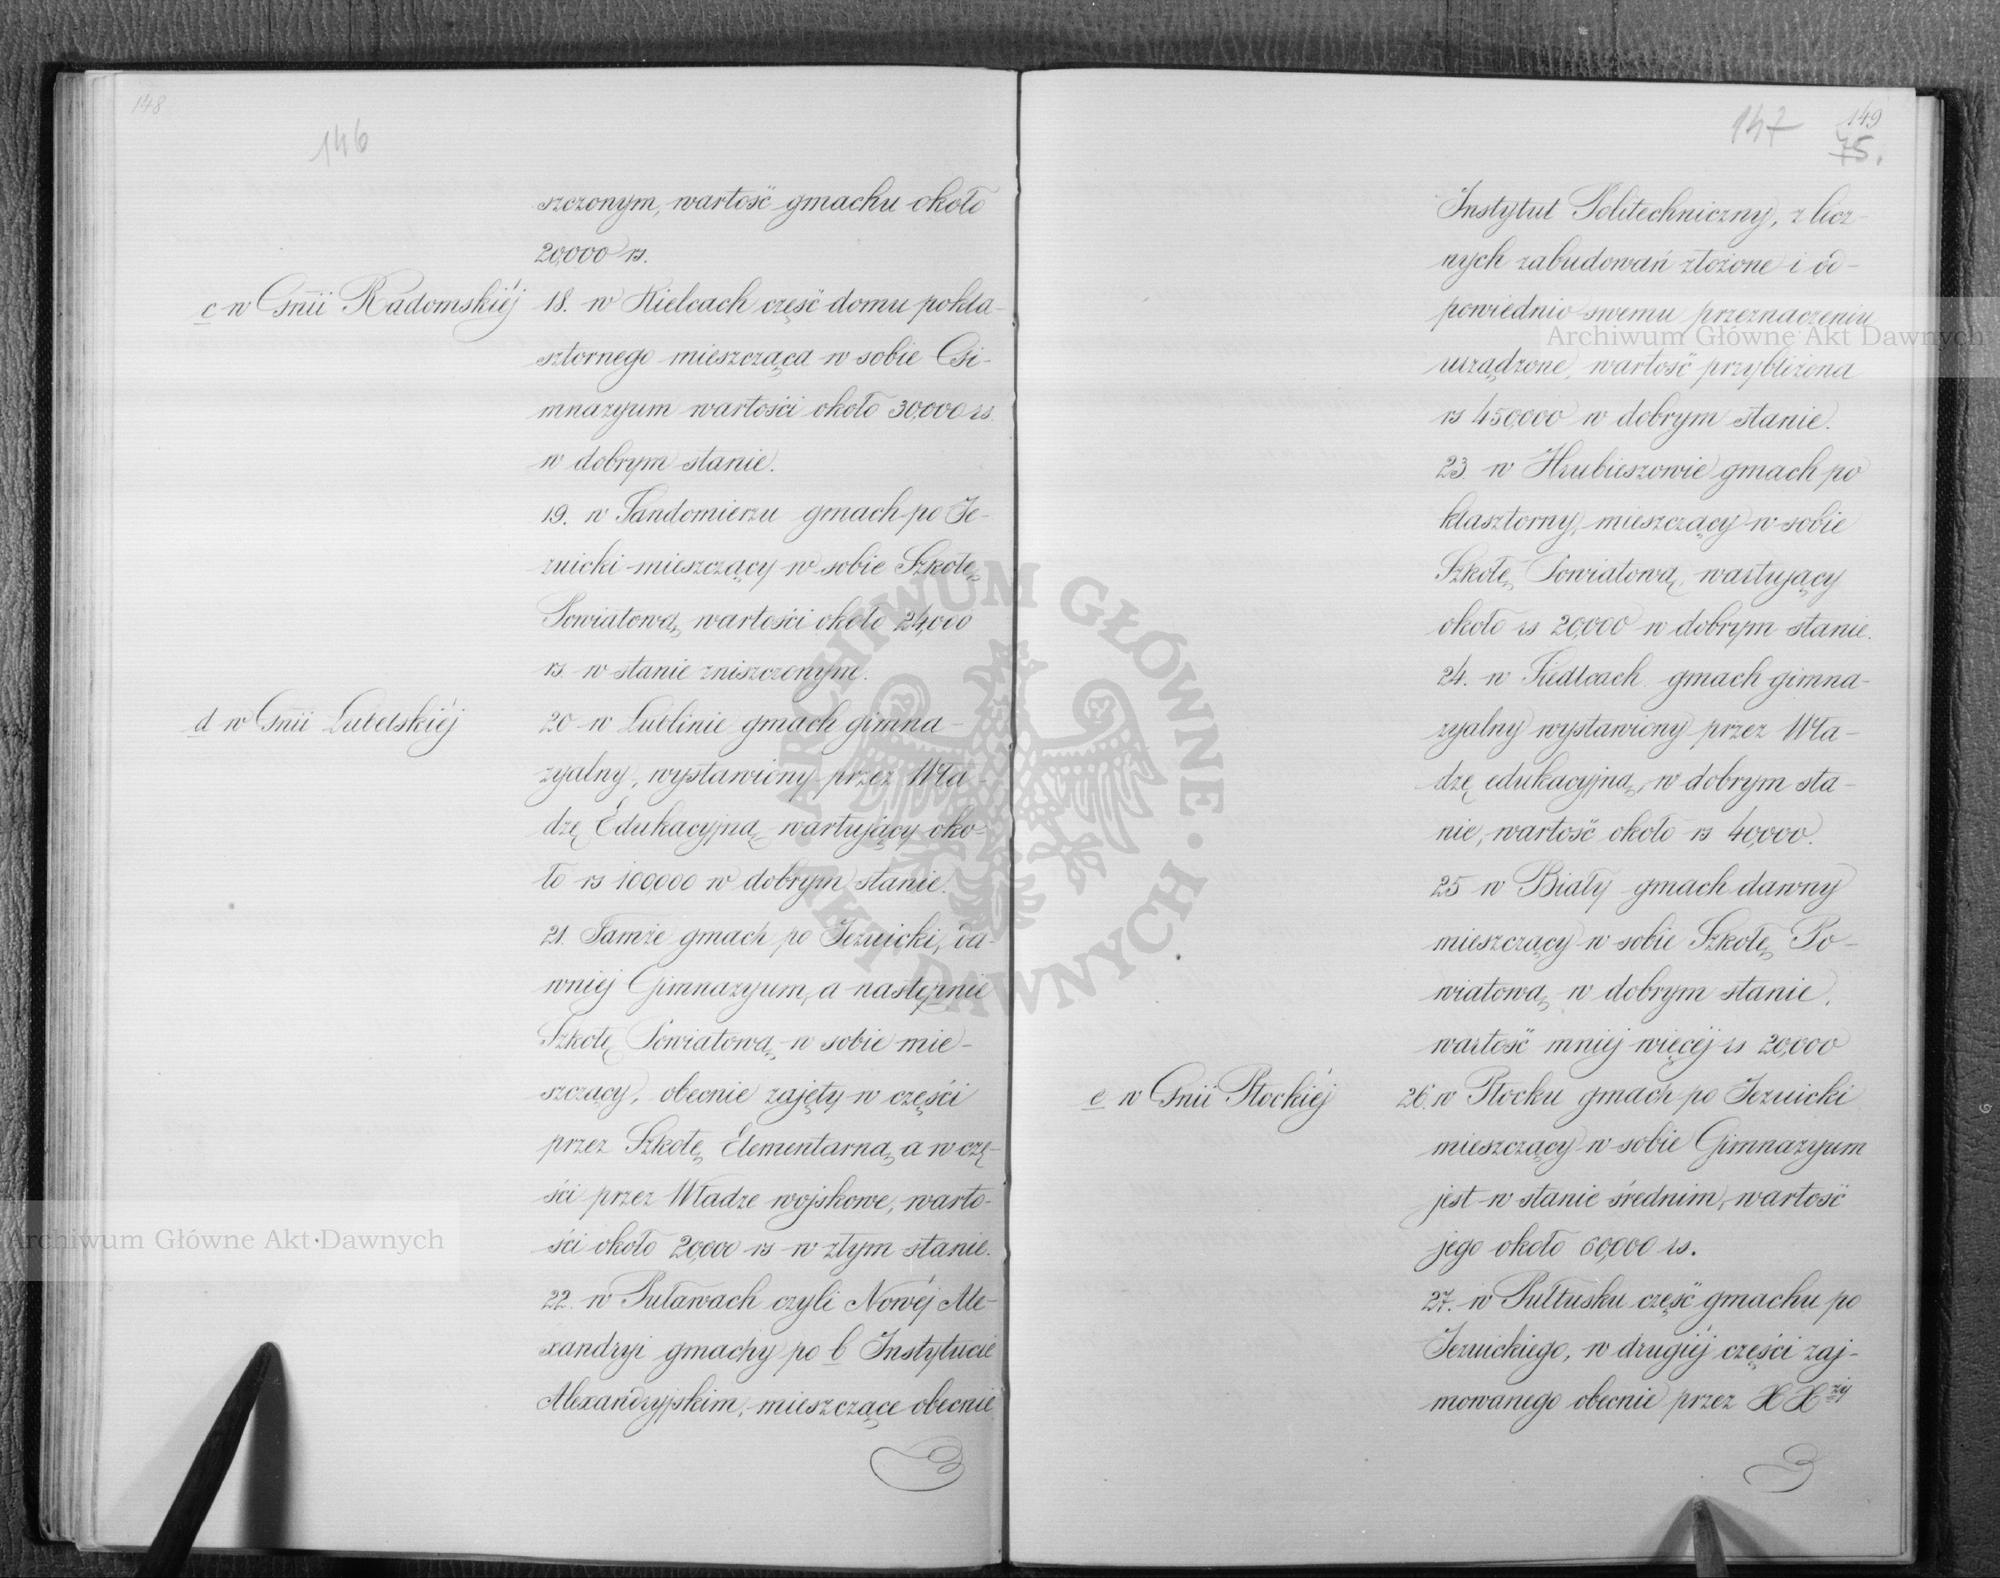 148
146
szczonym, wartość gmachu około
20,000 rs.
c w Gnii Radomskiéj
18. w Kielcach część domu pokla-
sztornego mieszcząca w sobie Gi-
mnazyum wartości około 30,000 rs.
w dobrym stanie.
19. w Sandomierzu gmach po Je-
zuicki mieszczący w sobie Szkołę
Powiatową, wartości około 24,000
rs. w stanie zniszczonym.
d w Gnii Lubelskiéj
20 w Lublinie gmach gimna-
zyalny, wystawiony przez Wła-
dzę Edukacyjną wartujący oko-
ło rs 100,000 w dobrym stanie.
21. Tamże gmach po Jezuicki, da-
wniej Gimnazyum, a następnie
Szkołę Powiatową w sobie mie-
szczący, obecnie zajęty w części
przez Szkołę Elementarną a w czę-
ści przez Władze wojskowe, warto-
ści około 20,000 rs w złym stanie.
22. w Puławach czyli Nowéj Ale-
xandryi gmachy po b Instytucie
Alexandryjskim, mieszczące obecnie
147
149
75.
Instytut Politechniczny, z licz-
nych zabudowań złożone i od-
powiednio swemu przeznaczeniu
urządzone, wartość przybliżona
rs 450,000 w dobrym stanie.
23. w Hrubieszowie gmach po
klasztorny, mieszczący w sobie
Szkołę Powiatową, wartujący
około rs 20,000 w dobrym stanie.
24. w Siedlcach gmach gimna-
zyalny wystawiony przez Wła-
dzę edukacyjną, w dobrym sta-
nie, wartość około rs 40,000.
25 w Biały gmach dawny
mieszczący w sobie Szkołę Po-
wiatową w dobrym stanie,
wartość mniéj więcéj rs 20,000
e w Gnii Płockiéj
26. w Płocku gmach po Jezuicki
mieszczący w sobie Gimnazyum
jest w stanie średnim, wartość
jego około 60,000 rs.
27. w Pułtusku część gmachu po
Jezuickiego, w drugiéj części zaj-
mowanego obecnie przez XXży
Archiwum Główne Akt Dawnych
Archiwum Główne Akt Dawnych
ARCHIWUM GŁÓWNE · AKT DAWNYCH ·